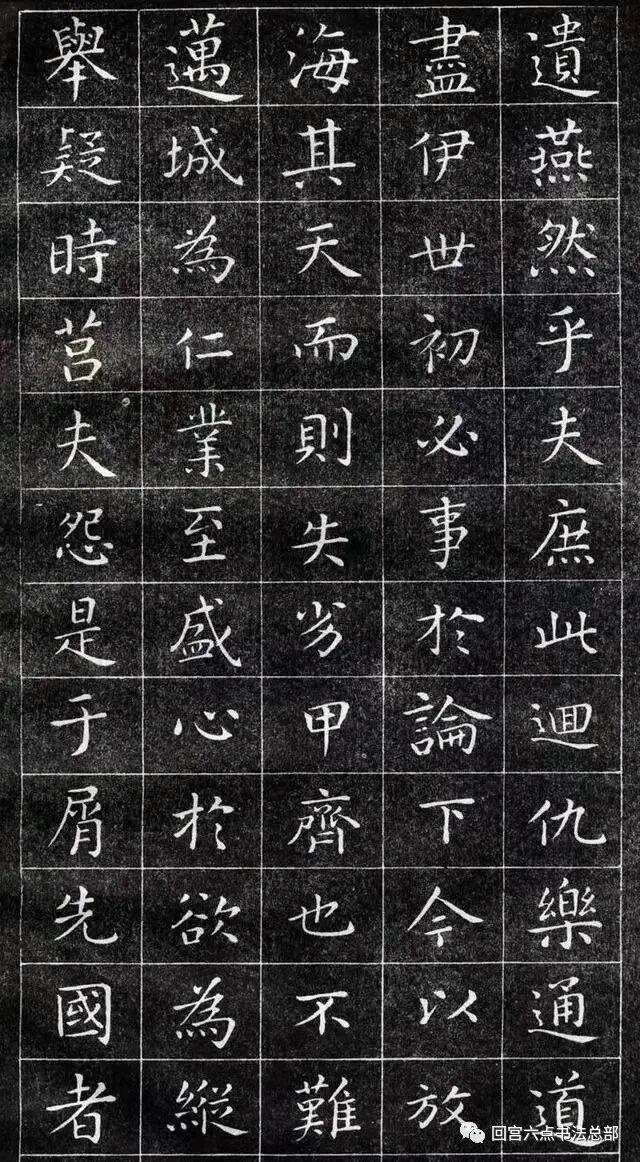 遺燕然乎夫庶此迴仇樂通道
盡伊世初必事於論下今以放
海其天而則失劣甲齊也不難
邁城為仁業至盛心於欲為縱
舉疑時莒夫怨是于屑先國者
回宫六点书法总部